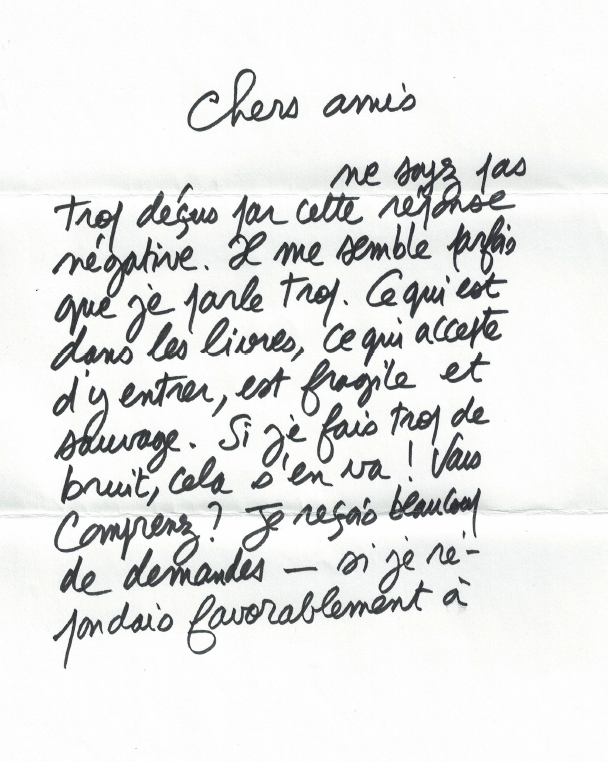 Chers amis
ne soyez pas
trop déçus par cette réponse
négative. Il me semble parfois
que je parle trop. Ce qui est
dans les livres, ce qui accepte
d'y entrer, est fragile et
sauvage. Si je fais trop de
bruit, cela s'en va ! Vous
Comprenez ? Je reçois beaucoup
de demandes — si je ré-
pondais favorablement à